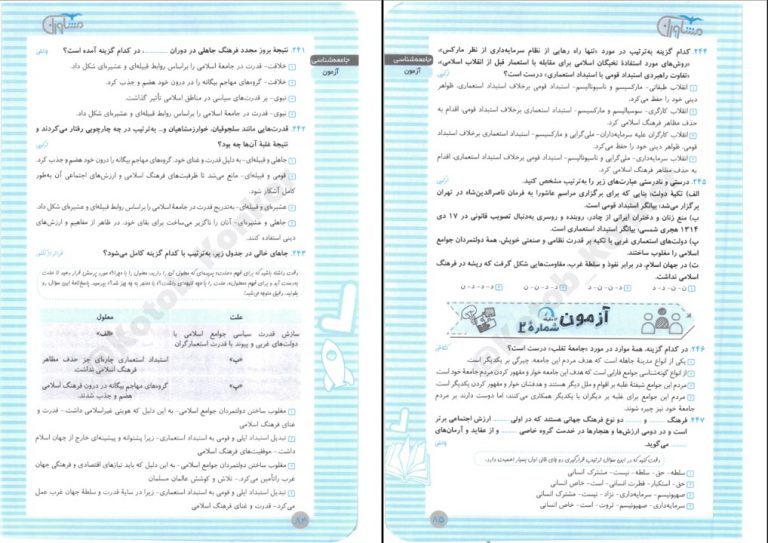 مشاوران
جامعه‌شناسی
آزمون
۲۴۱. نتیجهٔ بروز مجدد فرهنگ جاهلی در دوران ............ ، در کدام گزینه آمده است؟
۱) خلافت- قدرت در جامعهٔ اسلامی را براساس روابط قبیله‌ای و عشیره‌ای شکل داد.
۲) خلافت- گروه‌های مهاجم بیگانه را در درون خود هضم و جذب کرد.
۳) نبوی- بر قدرت‌های سیاسی در مناطق اسلامی تأثیر گذاشت.
۴) نبوی- قدرت در جامعهٔ اسلامی را براساس روابط قبیله‌ای و عشیره‌ای شکل داد.
۲۴۲. قدرت‌هایی مانند سلجوقیان، خوارزمشاهیان و... به‌ترتیب در چه چارچوبی رفتار می‌کردند و
نتیجهٔ غلبهٔ آن‌ها چه بود؟
۱) جاهلی و قبیله‌ای- به دلیل قدرت و غنای خود، گروه‌های مهاجم بیگانه را درون خود هضم و جذب کرد.
۲) قومی و قبیله‌ای- مانع می‌شد تا ظرفیت‌های فرهنگ اسلامی و ارزش‌های اجتماعی آن به‌طور
کامل آشکار شود.
۳) عشیره‌ای و قبیله‌ای- به‌تدریج قدرت در جامعهٔ اسلامی را براساس روابط قبیله‌ای و عشیره‌ای شکل داد.
۴) عشیره‌ای و قبیله‌ای- آنان را ناگزیر می‌ساخت برای بقای خود، در ظاهر از مفاهیم و ارزش‌های
دینی استفاده کنند.
۲۴۳. جاهای خالی در جدول زیر، به‌ترتیب با کدام گزینه کامل می‌شود؟
علت
معلول
سازش قدرت سیاسی جوامع اسلامی با
دولت‌های غربی و پیوند با قدرت استعمارگران
«الف»
«ب»
استبداد استعماری چاره‌ای جز حذف مظاهر
فرهنگ اسلامی نداشت.
«پ»
گروه‌های مهاجم بیگانه در درون فرهنگ اسلامی
هضم و جذب شدند.
۱) مغلوب ساختن دولتمردان جوامع اسلامی- به این دلیل که هویتی غیراسلامی داشت- قدرت و
غنای فرهنگ اسلامی
۲) تبدیل استبداد ایلی و قومی به استبداد استعماری- زیرا پشتوانه و پیشینه‌ای خارج از جهان اسلام
داشت- موفقیت‌های فرهنگ اسلامی
۳) مغلوب ساختن دولتمردان جوامع اسلامی- به این دلیل که باید نیازهای اقتصادی و فرهنگی جهان
غرب را تأمین می‌کرد- تلاش و کوشش عالمان مسلمان
۴) تبدیل استبداد ایلی و قومی به استبداد استعماری- زیرا در سایهٔ قدرت و سلطهٔ جهان غرب عمل
می‌کرد- قدرت و غنای فرهنگ اسلامی
۸۴
مشاوران
جامعه‌شناسی
آزمون
۲۴۴. کدام گزینه به‌ترتیب در مورد «تنها راه رهایی از نظام سرمایه‌داری از نظر مارکس»،
«روش‌های مورد استفادهٔ نخبگان اسلامی برای مقابله با استعمار قبل از انقلاب اسلامی»،
«تفاوت راهبردی استبداد قومی با استبداد استعماری» درست است؟
۱) انقلاب طبقاتی- مارکسیسم و ناسیونالیسم- استبداد قومی برخلاف استبداد استعماری، ظواهر
دینی خود را حفظ می‌کرد.
۲) انقلاب کارگری- سوسیالیسم و مارکسیسم- استبداد استعماری برخلاف استبداد قومی، اقدام به
حذف مظاهر فرهنگ اسلامی کرد.
۳) انقلاب کارگران علیه سرمایه‌داران- ملی‌گرایی و مارکسیسم- استبداد استعماری برخلاف استبداد
قومی، ظواهر دینی خود را حفظ می‌کرد.
۴) انقلاب علیه سرمایه‌داری- ملی‌گرایی و ناسیونالیسم- استبداد قومی برخلاف استبداد استعماری، اقدام
به حذف مظاهر فرهنگ اسلامی کرد.
۲۴۵. درستی و نادرستی عبارت‌های زیر را به‌ترتیب مشخص کنید.
الف) تکیهٔ دولت، بنایی که برای برگزاری مراسم عاشورا به فرمان ناصرالدین‌شاه در تهران
برگزار می‌شد؛ بیانگر استبداد قومی است.
ب) منع زنان و دختران ایرانی از چادر، روبنده و روسری به‌دنبال تصویب قانونی در ۱۷ دی
۱۳۱۴ هجری شمسی؛ بیانگر استبداد استعماری است.
پ) دولت‌های استعماری غربی با تکیه بر قدرت نظامی و صنعتی خویش، همهٔ دولتمردان جوامع
اسلامی را مغلوب ساختند.
ت) در جهان اسلام، در برابر نفوذ و سلطهٔ غرب، مقاومت‌هایی شکل گرفت که ریشه در فرهنگ
اسلامی نداشت.
آزمون
شمارهٔ ۲
۲۴۶. در کدام گزینه، همهٔ موارد در مورد «جامعهٔ تغلب» درست است؟
۱) یکی از انواع مدینهٔ جاهله است که هدف مردم این جامعه، چیرگی بر یکدیگر است.
۲) از انواع گونه‌شناسی جوامع فارابی است که هدف این جامعه خوار و مقهور کردن مردم جامعهٔ خود است.
۳) مردم این جوامع شیفتهٔ غلبه بر اقوام و ملل دیگر هستند و هدفشان خوار و مقهور کردن یکدیگر است.
۴) مردم این جوامع برای غلبه بر دیگران با یکدیگر همکاری می‌کنند، اما دوست دارند بر مردم
جامعهٔ خود نیز چیره شوند.
۲۴۷. فرهنگ ............ و ............ دو نوع فرهنگ جهانی هستند که در اولی ............ ارزش اجتماعی برتر
است و در دومی ارزش‌ها و هنجارها در خدمت گروه خاصی ............ و از عقاید و آرمان‌های
............ می‌گوید.
۱) سلطه- حق- سلطه- نیست- مشترک انسانی
۲) حق- استکبار- فطرت انسانی- است- خاص انسانی
۳) صهیونیسم- سرمایه‌داری- نژاد- نیست- مشترک انسانی
۴) سرمایه‌داری- صهیونیسم- ثروت- است- خاص انسانی
۸۵